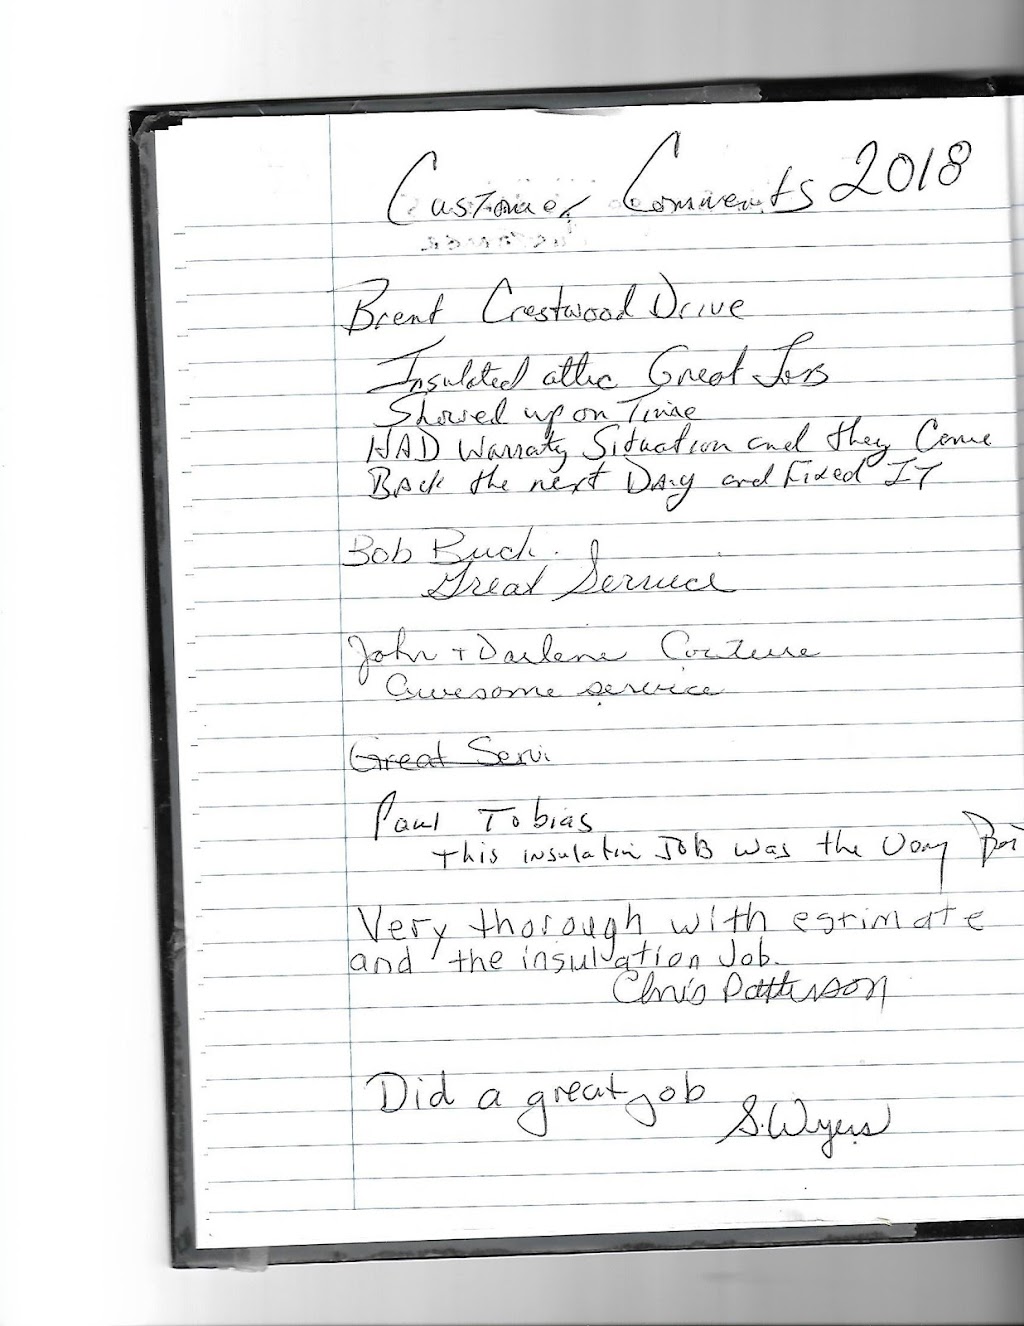 Customer Comments 2018
Brent Crestwood Drive
Insulated attic Great Job
Showed up on Time
HAD Warraty Situation and they Came
Back the next DAy and Fixed IT
Bob Buck.
Great Service
John + Darlene Couture
Awesome service
Great Servi
Paul Tobias
This insulation JOB was the Very
Very thorough with estimate
and the insulation Job.
Chris Patterson
Did a great job
S. Wyers